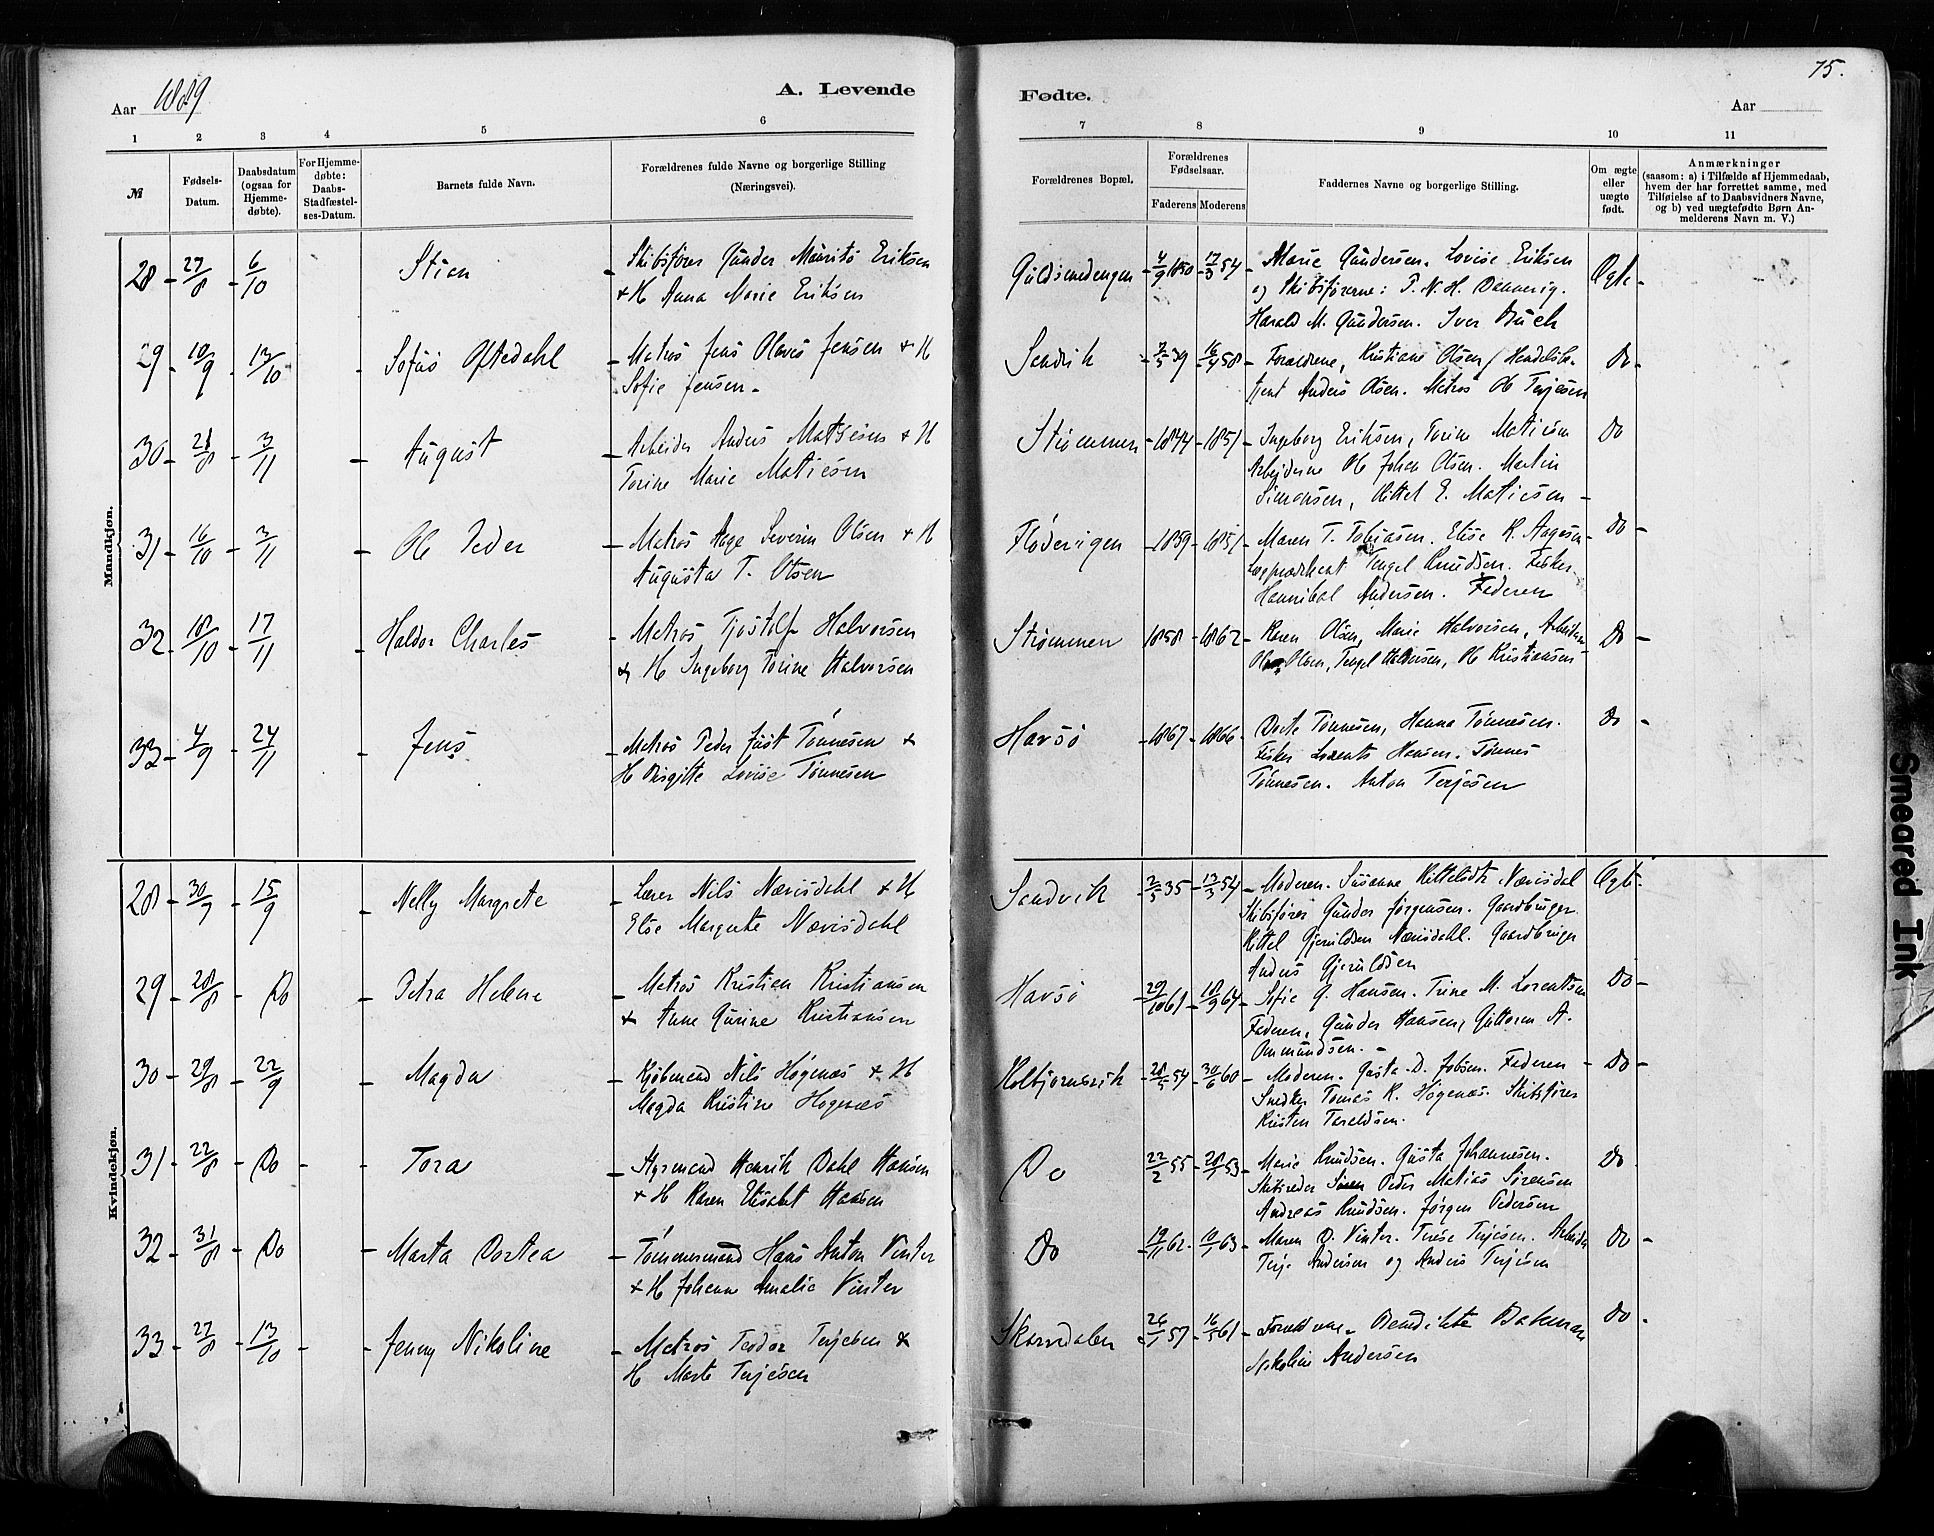 Aar 1889
A. Levende
Fødte.
Aar
75.
1 2 3 4 5 6 7 8 9 10 11
№
Fødsels-
Datum.
Daabsdatum
(ogsaa for
Hjemme-
døbte).
For Hjemme-
døbte:
Daabs-
Stadfæstel-
ses-Datum.
Barnets fulde Navn.
Forældrenes fulde Navne og borgerlige Stilling
(Næringsvei).
Forældrenes Bopæl.
Forældrenes
Fødselsaar.
Faderens Moderens
Faddernes Navne og borgerlige Stilling.
Om ægte
eller
uægte
født.
Anmærkninger
(saasom: a) i Tilfælde af Hjemmedaab,
hvem der har forrettet samme, med
Tilføielse af to Daabsvidners Navne,
og b) ved uægtefødte Børn An-
melderens Navn m. V.)
Mandkjøn.
28 - 27/8 - 6/10 Stian - Skibsfører Gunder Mauritz Eriksen
+ H Anna Marie Eriksen
Guldsmedengen - 4/9 1850 - 17/3 54 - Marie Gundersen. Lovise Eriksen
og Skibsførerne: P. N. H. Dannevig.
Harald M. Gundersen. Iver Buch
Ægte -
29 - 10/9 - 13/10 - Sofus Oftedahl - Matros Jens Olaves Jensen + H
Sofie Jensen -
Sandvik - 7/5 39 - 16/4 58 - Forældrene, Kristiane Olsen, Handelsbe-
tjent Anders Olsen. Matros Ole Terjesen
Do -
30 - 21/8 - 3/11 - August - Arbeider Anders Mathisen + H
Torine Marie Matiesen
Strømmen - 1844 - 1851 - Ingeborg Eriksen, Torine Matiesen
Arbejderne Ole Johan Olsen. Martin
Simonsen, Kittel E. Matiesen -
Do
31 - 16/10 - 3/11 - Ole Peder - Matros Aage Severin Olsen + H
Augusta T. Olsen
Flødevigen - 1859 - 1851 - Maren T. Tobiasen. Elise K. Aagesen -
Lægprædikant Tengel Knudsen. Fisker
Hannibal Andersen. Faderen
Do -
32 - 18/10 - 17/11 - Haldor Charles - Matros Tjøstolf Halvorsen
& H Ingeborg Torine Halvorsen
Strømmen 1858 - 1862 - Karen Olsen, Marie Halvorsen, Arbeiderne
Olsen, Tengel Halvorsen, Ole Kristiansen -
Do -
33 - 4/9 - 24/11 - Jens - Matros Peder Just Tønnesen +
H Birgitte Lovise Tønnesen
Havsø - 1867 - 1866 - Dorte Tønnesen, Hanna Tønnesen.
Fisker Lorents Hansen. Tønnes
Tønnesen. Anton Terjesen
Do -
Kvindekjøn.
28 - 30/7 - 15/9 - Nelly Margrete - Lærer Nils Nævisdahl + H
Else Margrete Nævisdahl
Sandvik - 2/5 35 - 13/3 54 - Moderen. Susanne Kittelsdtr. Nævisdal
Skibsfører Gunder Jørgensen. Gaardbruger
Kittel Gjeruldsen Nævisdahl. Gaardbruger
Anders Gjeruldsen
Ægte -
29 - 28/8 - Do - Petra Helene - Matros Kristian Kristiansen
+ Anne Gurine Kristiansen
Havsø - 29/10 61 - 18/9 64 - Sofie G. Hansen. Trine M. Lorentsen
Faderen, Gunder Hansen, Guttorm A.
Ommundsen. -
Do -
30 - 29/8 - 22/9 - Magda - Kjøbmand Nils Høgenæs + H
Magda Kristine Høgenæs
Kolbjørnsvik - 28/5 54 - 30/6 60 - Moderen. Gusta D. Jobsen. Faderen
Snedker Tomas K. Høgenæs. Skibsfører
Kristen Taraldsen.
- Do -
31 - 22/8 - Do - - Tora - Styrmand Henrik Dahl Hansen
+ H Karen Elisabet Hansen
Do 22/2 55 - 28/1 53 - Marie Knudsen. Gusta Johannesen.
Skibsreder Peder Matias Sørensen
Andreas Knudsen. Jørgen Pedersen
Do
32 - 31/8 - Do - Marta Dortea - Tømmermand Hans Anton Vinter
+ H Johanne Amalie Vinter
Do - 19/11 62 - 10/1 63 - Maren O. Vinter. Terese Terjesen. Arbeider
Terje Andersen og Anders Terjesen
Do -
33 - 27/8 - 13/10 - - Jenny Nikoline - Matros Teodor Terjesen &
H Marte Terjesen
Skarvedalen 26/1 57 - 16/5 61 - Forældrene. Bendikte Bakman
Nikoline Andersen
Do -
Smeared Ink